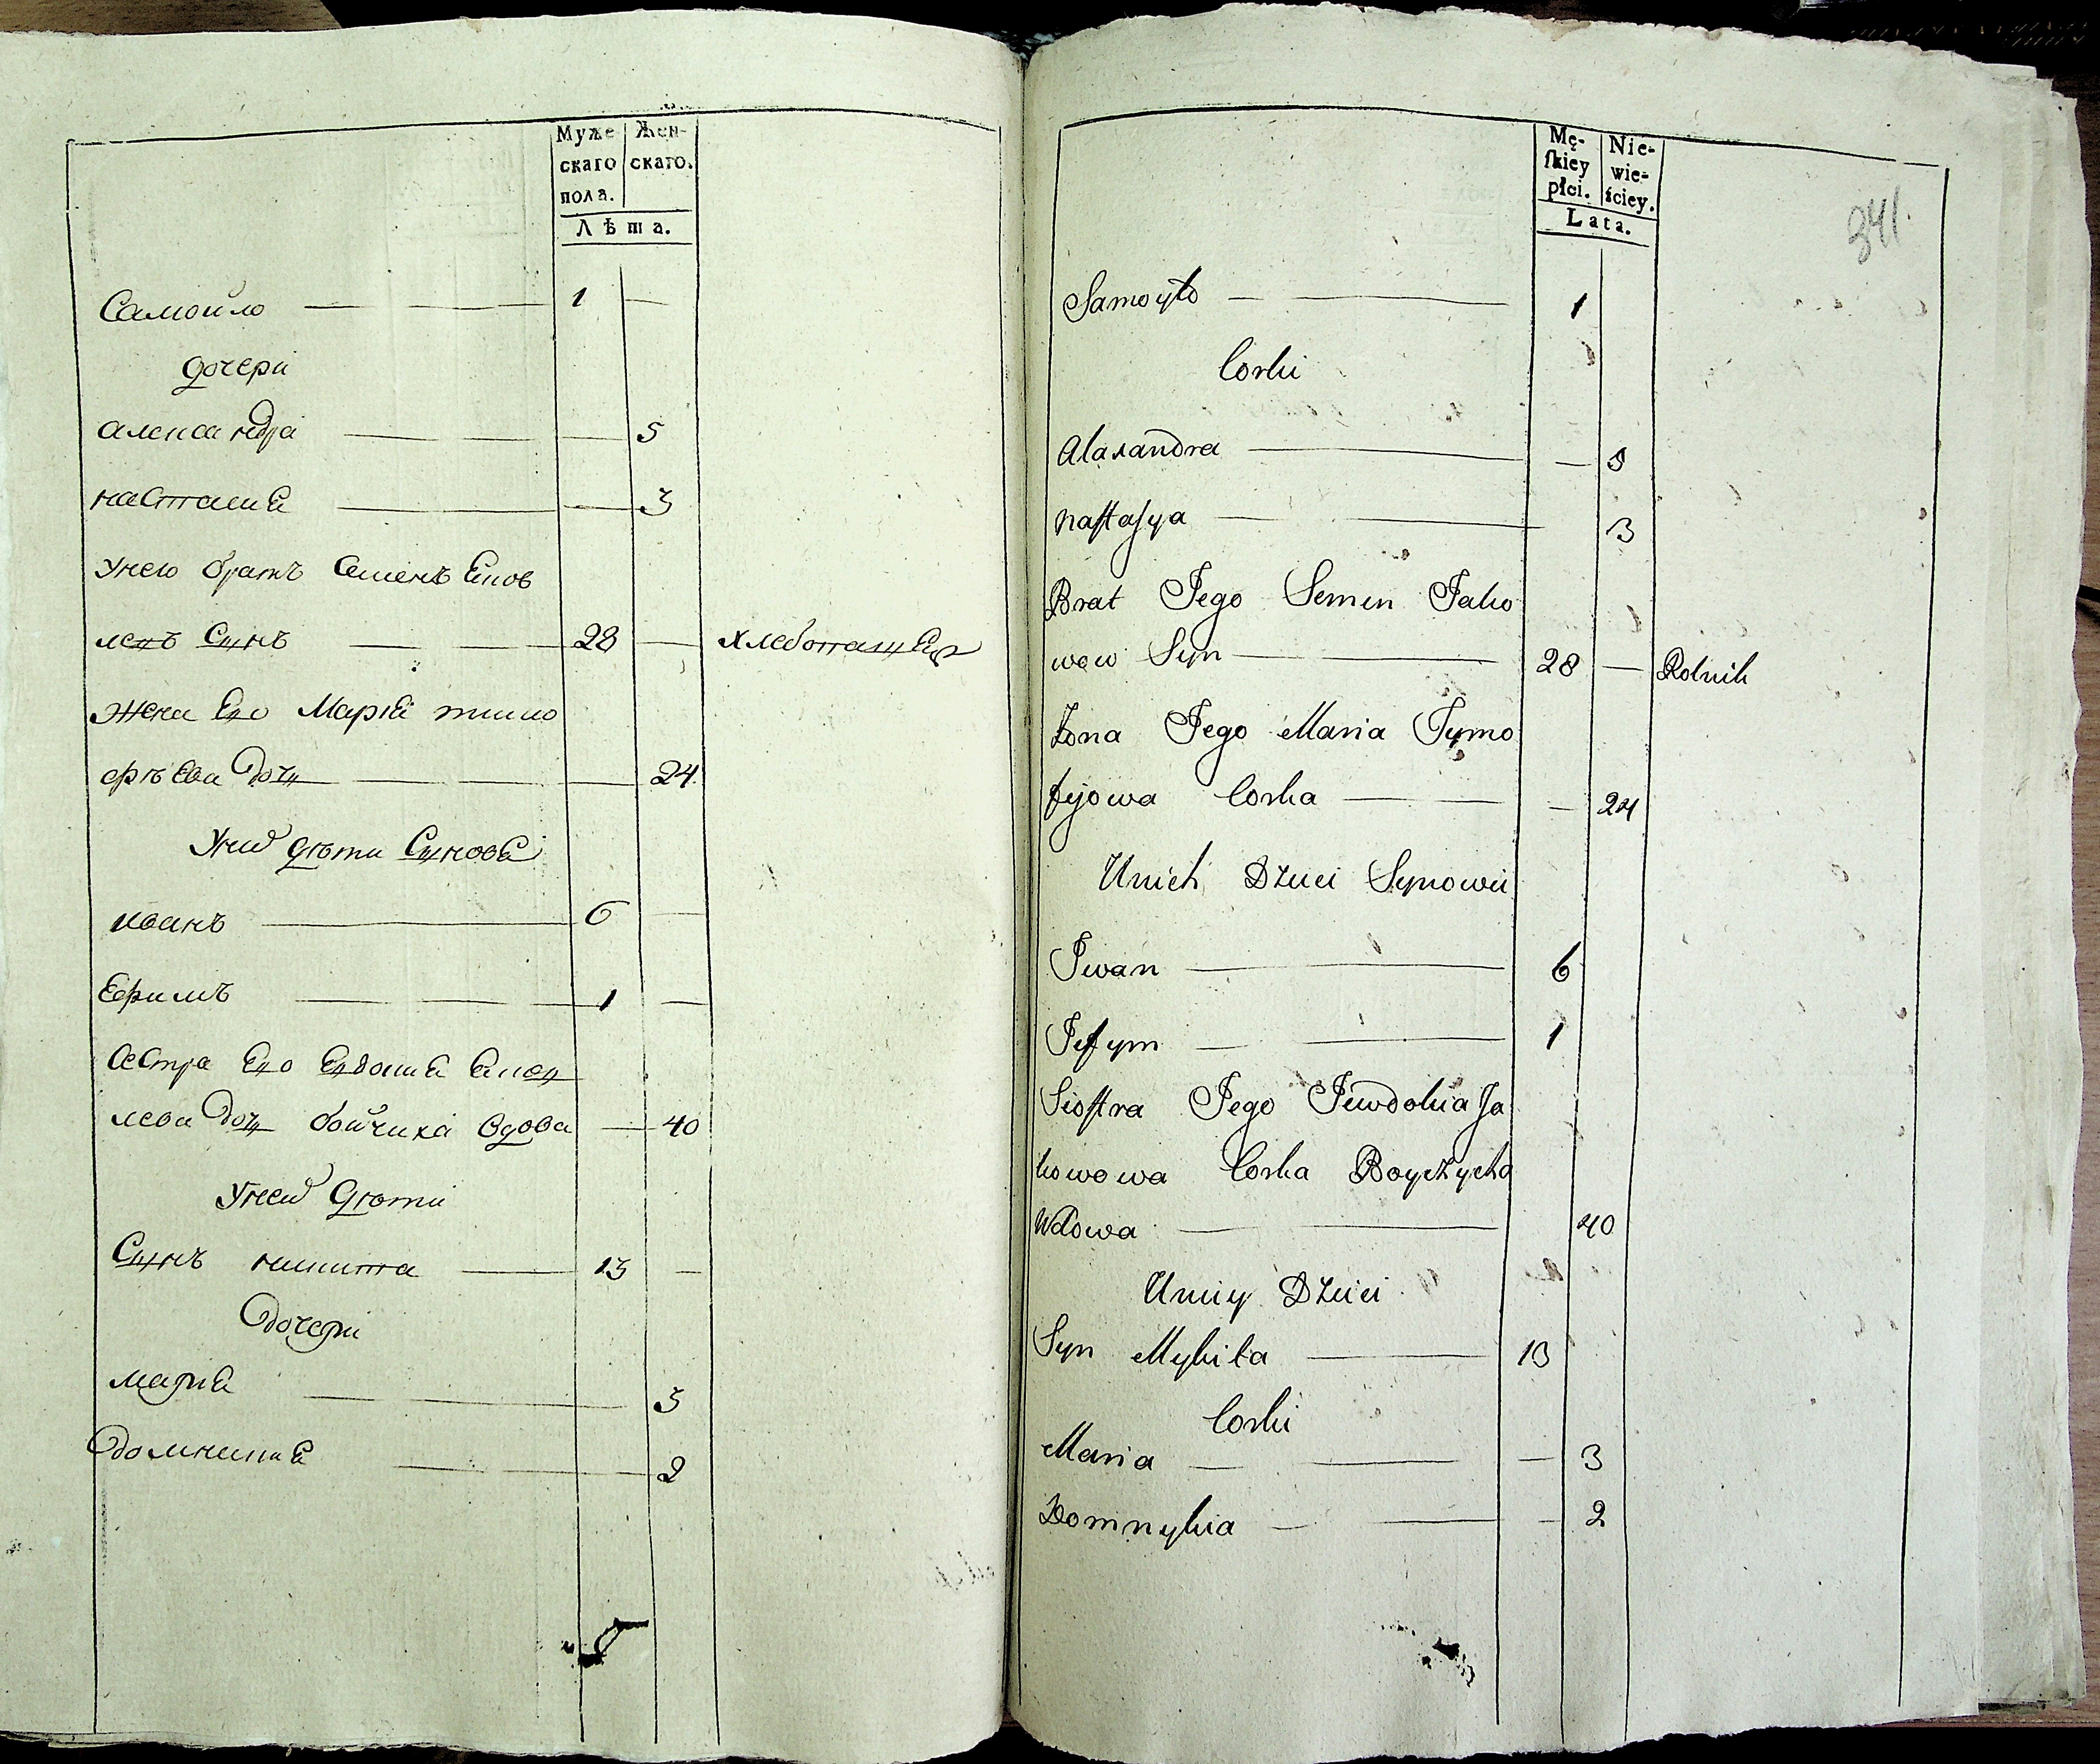 Муже
скаго
пола.
Жен-
скаго.
Лѣта.
Самойло 1
дочери
александра 5
настасиа 3
унего братъ Семенъ Яков
левъ Сынъ 28 хлебопашецъ
Жена Его Мариа тимо
фѣева дочь 24
Уних дѣти Сынова
иванъ 6
Ефимъ 1
Сестра Его Евдокиа Яков
лева дочь бойчиха вдова 40
Унея дѣти
Сынъ никита 13
дочери
мариа 3
домникиа 2
Mę-
ſkiey
płci.
Nie-
wie-
ściey.
Lata.
341.
Samoyło 1
Corki
Alaxandra 5
Naſtaſya 3
Brat Jego Semen Jako
wow Syn 28 Rolnik
Żona Jego Maria Tymo
fijowa Corka 24
Unich Dzieci Synowie
Iwan 6
Jefym 1
Sioſtra Jego Jewdokia Ja
kowowa Corka Boyczycha
Wdowa 40
Uniey Dzieci
Syn Mykita 13
Corki
Maria 3
Domnykia 2